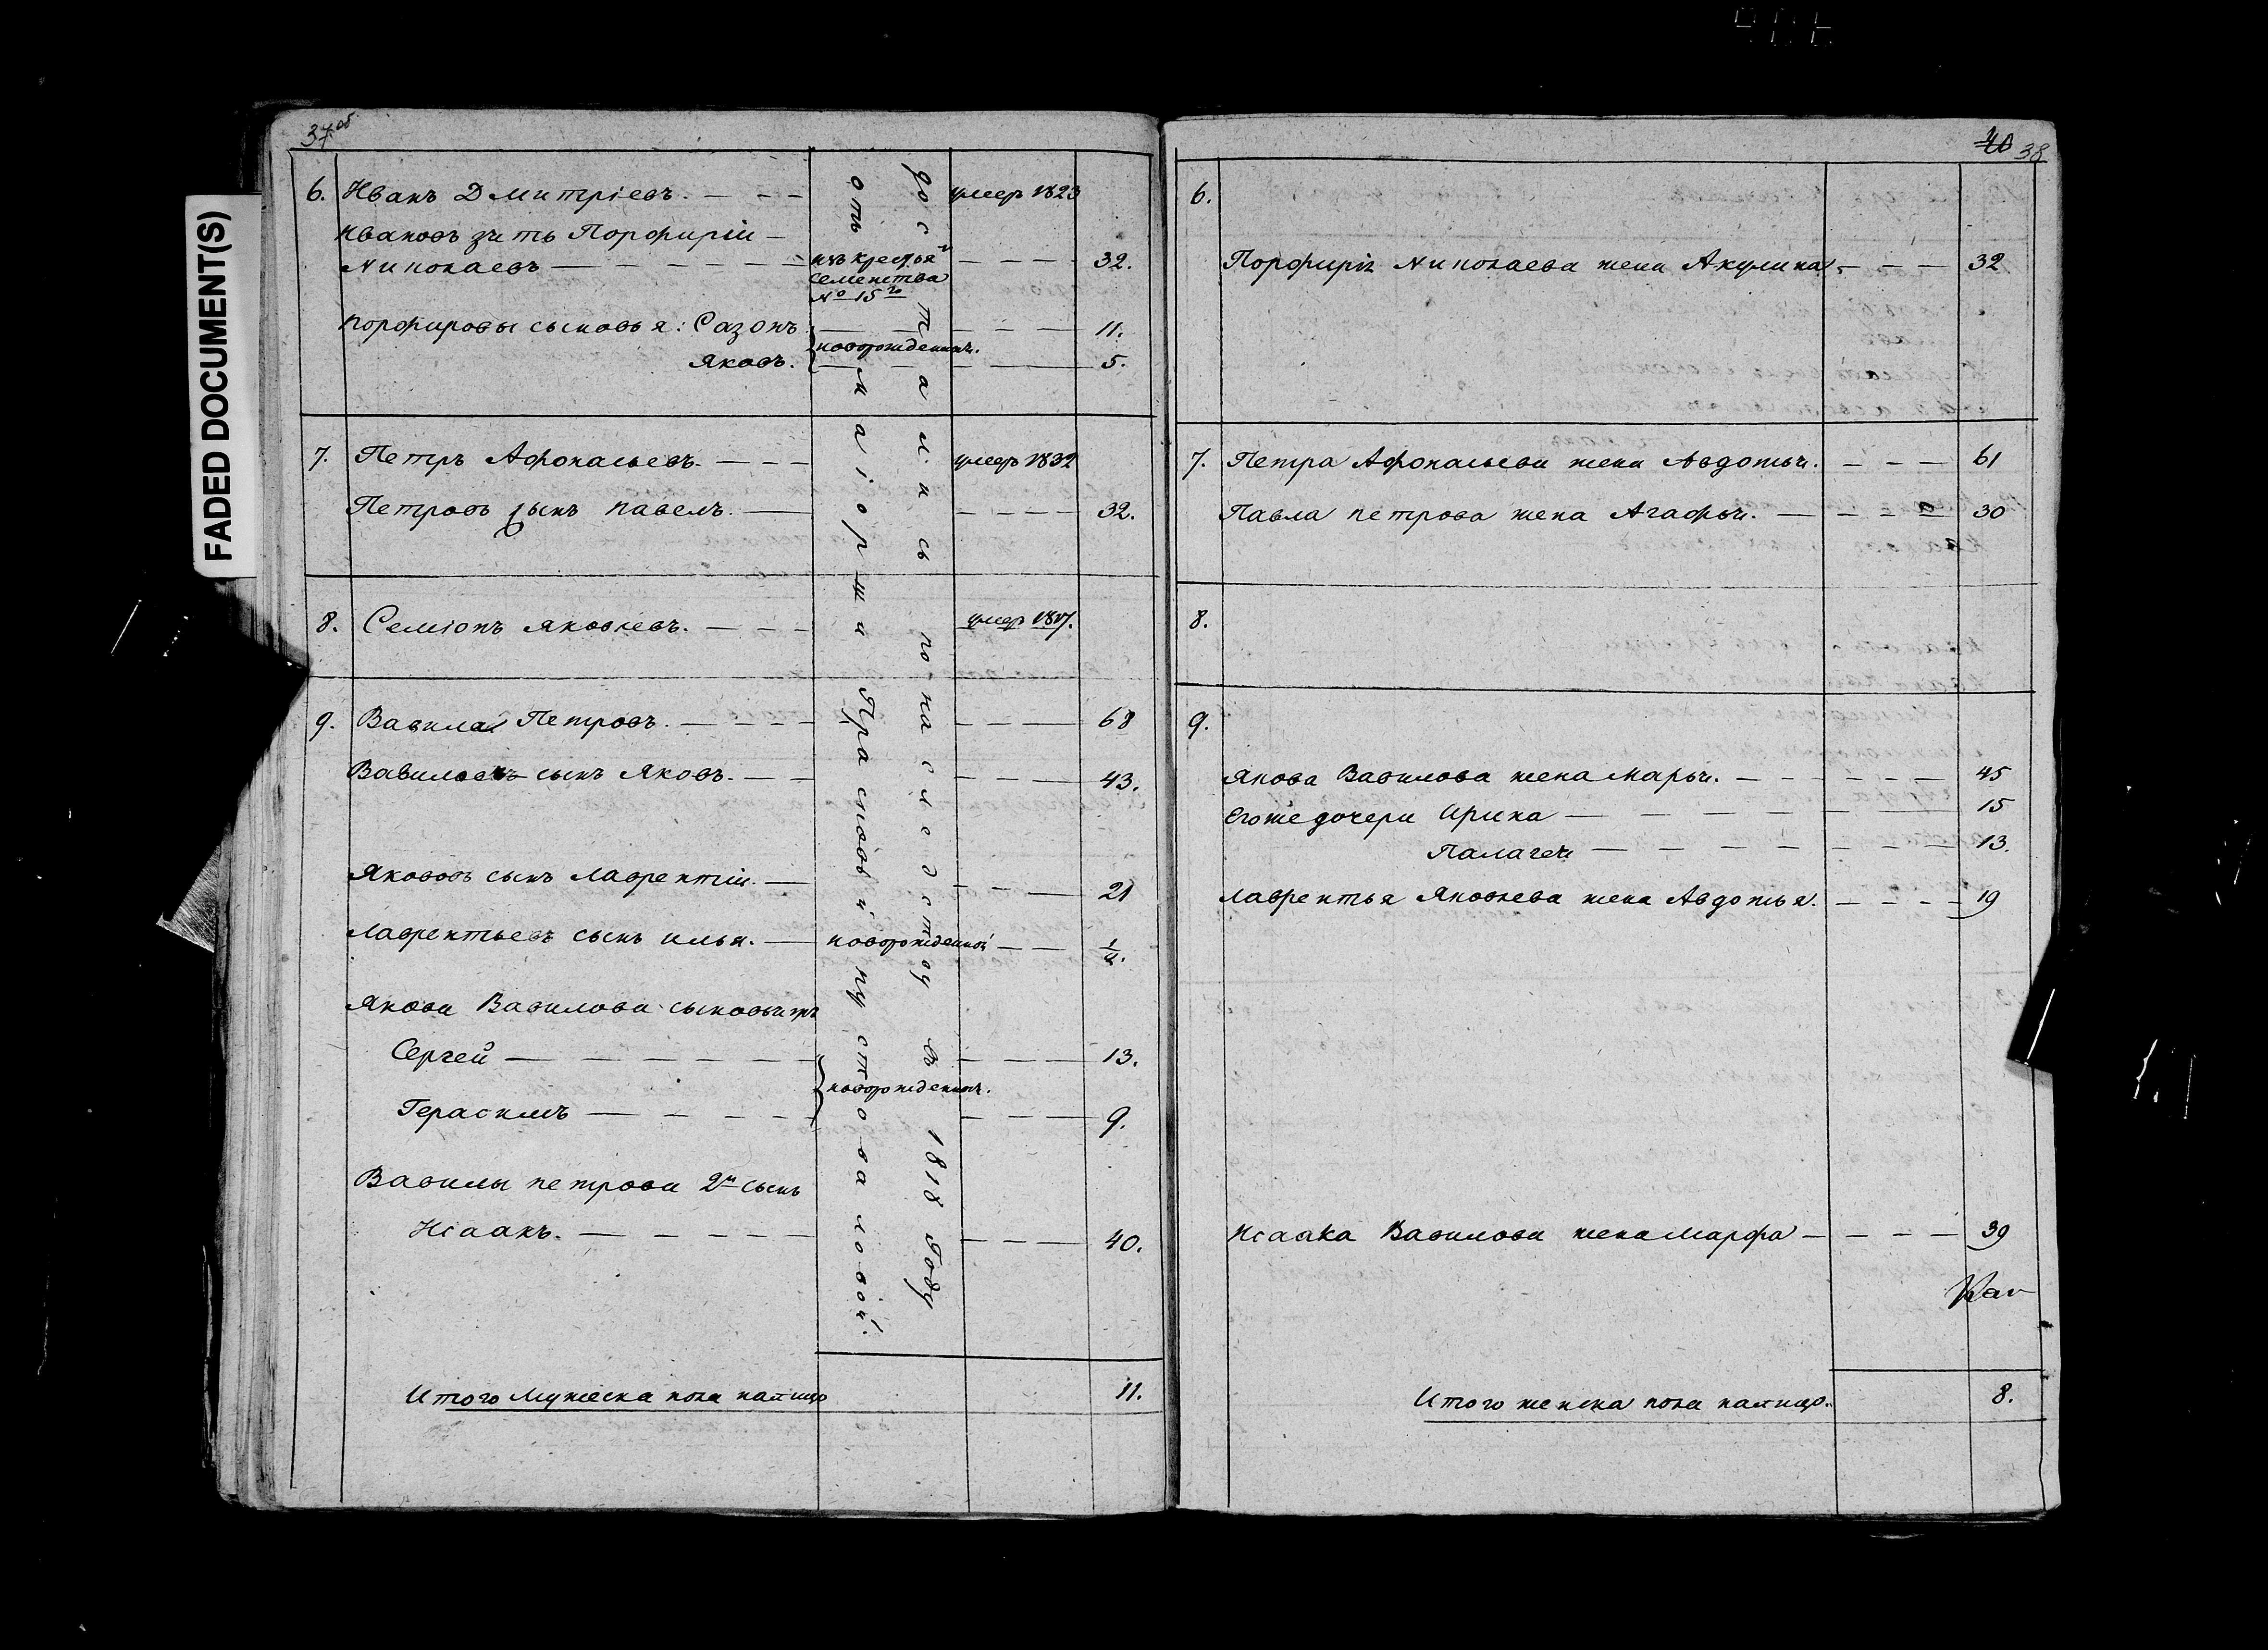 FADED DOCUMENT(S)
37 об
6. Иванъ Дмитріевъ. умеръ 1823
Ивановъ зять Порфирій
Николаевъ изъ крестья 32.
семейства
№ 15го
Порфировы сыновья: Сазонъ 11.
новорожденныя.
Яковъ. 5.
7. Петръ Афонасьевъ. умеръ 1832
Петровъ сынъ павелъ. 32.
8. Семіонъ яковлевъ. умеръ 1817.
9. Вавила Петровъ. 68
Вавиловъ сынъ Яковъ. 43.
Якововъ сынъ лаврентій. 21
лаврентьевъ сынъ илья. новорожденной
Якова Вавилова сыновья
Сергей 13.
новорожденныя.
Герасимъ 9.
Вавилы петрова 2й сынъ
Исаакъ. 40.
достались по наследству въ 1818 году
отъ маіорши Прасковьи пустоваловой.
Итого мужеска пола налицо 11.
40 38
6.
Порфирія Николаева жена Акулина. 32
7. Петра Афонасьева жена Авдотья. 61
Павла петрова жена Агафья. 30
8.
9.
Якова Вавилова жена марья. 45
Его же дочери Ирина 15
Палагея 13.
лаврентья Яковлева жена Авдотья. 19
Исаака Вавилова жена марфа 39
Итого женска пола налицо. 8.